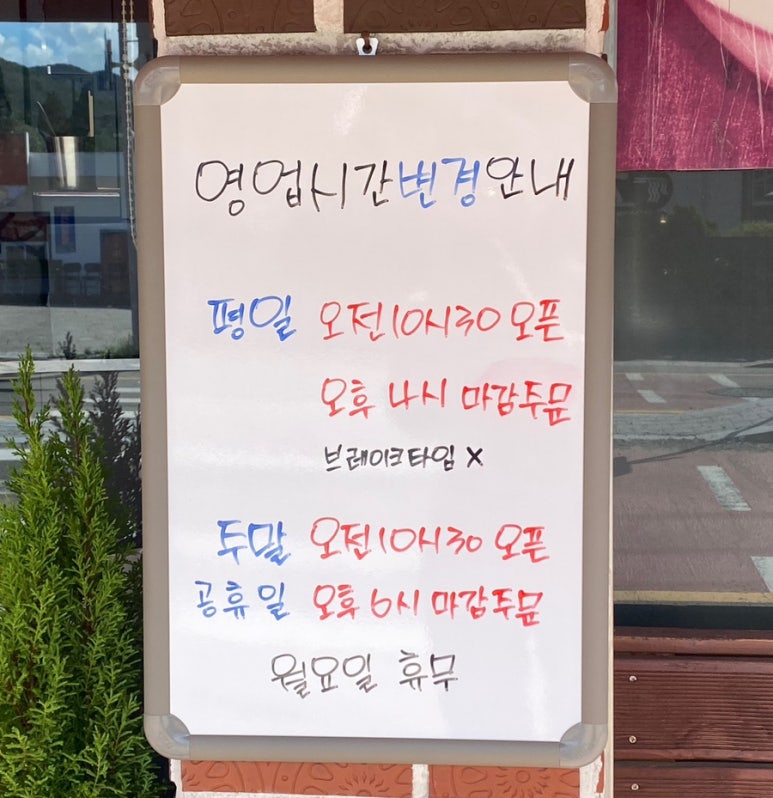 영업시간변경안내
평일 오전10시30 오픈
오후 4시 마감주문
브레이크타임 X
주말 오전10시30 오픈
공휴일 오후 6시 마감주문
월요일 휴무